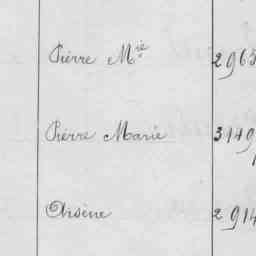 Pierre Mie 2965
Pierre Marie 3149
Arsène 2914